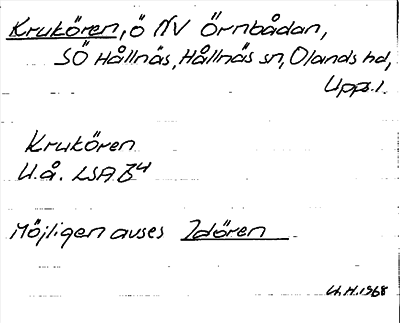 Krukören, ö NV Örnbådan,
SÖ Hållnäs, Hållnäs sn, Olands hd,
Upps. l.
Krukören
U.å. LSA B4
Möjligen avses Idören
U.H. 1968